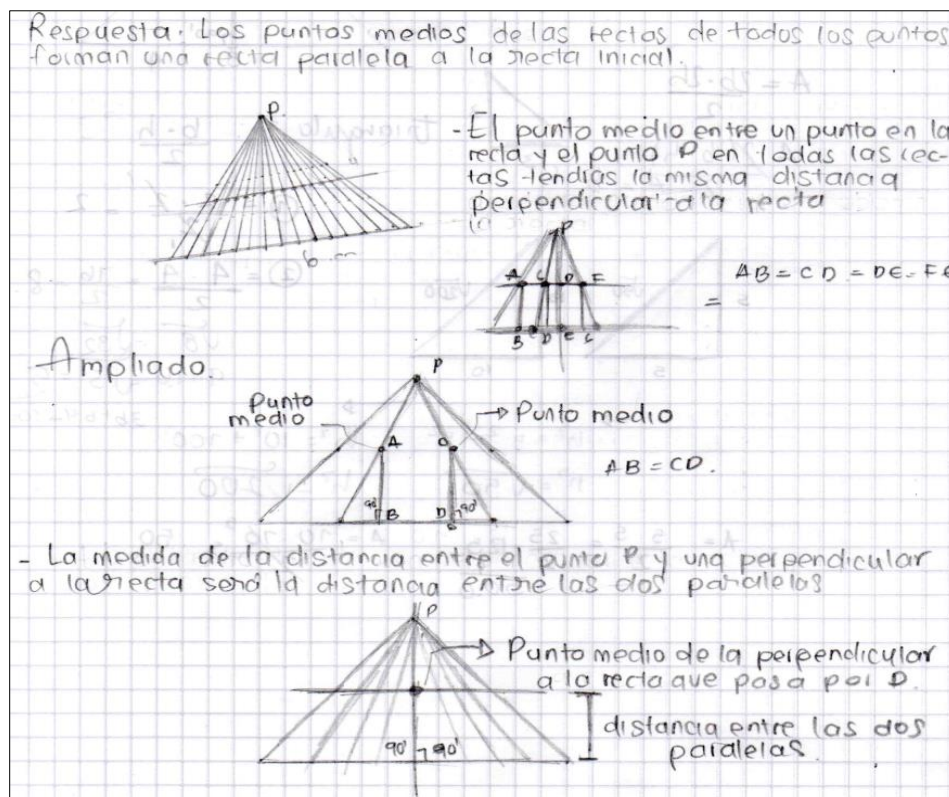 Respuesta. Los puntos medios de las rectas de todos los puntos
forman una recta paralela a la recta inicial.
P.
- El punto medio entre un punto en la
recta y el punto P en todas las rec-
tas tendías la misma distancia
perpendicular a la recta
P
A C D F
B C D E C
AB = CD = DE = FE
=
Ampliado.
P
Punto
medio
Punto medio
A
AB = CD.
90° B D 90°
- La medida de la distancia entre el punto P y una perpendicular
a la recta será la distancia entre las dos paralelas
P
Punto medio de la perpendicular
a la recta que pasa por P.
distancia entre las dos
paralelas.
90° 90°